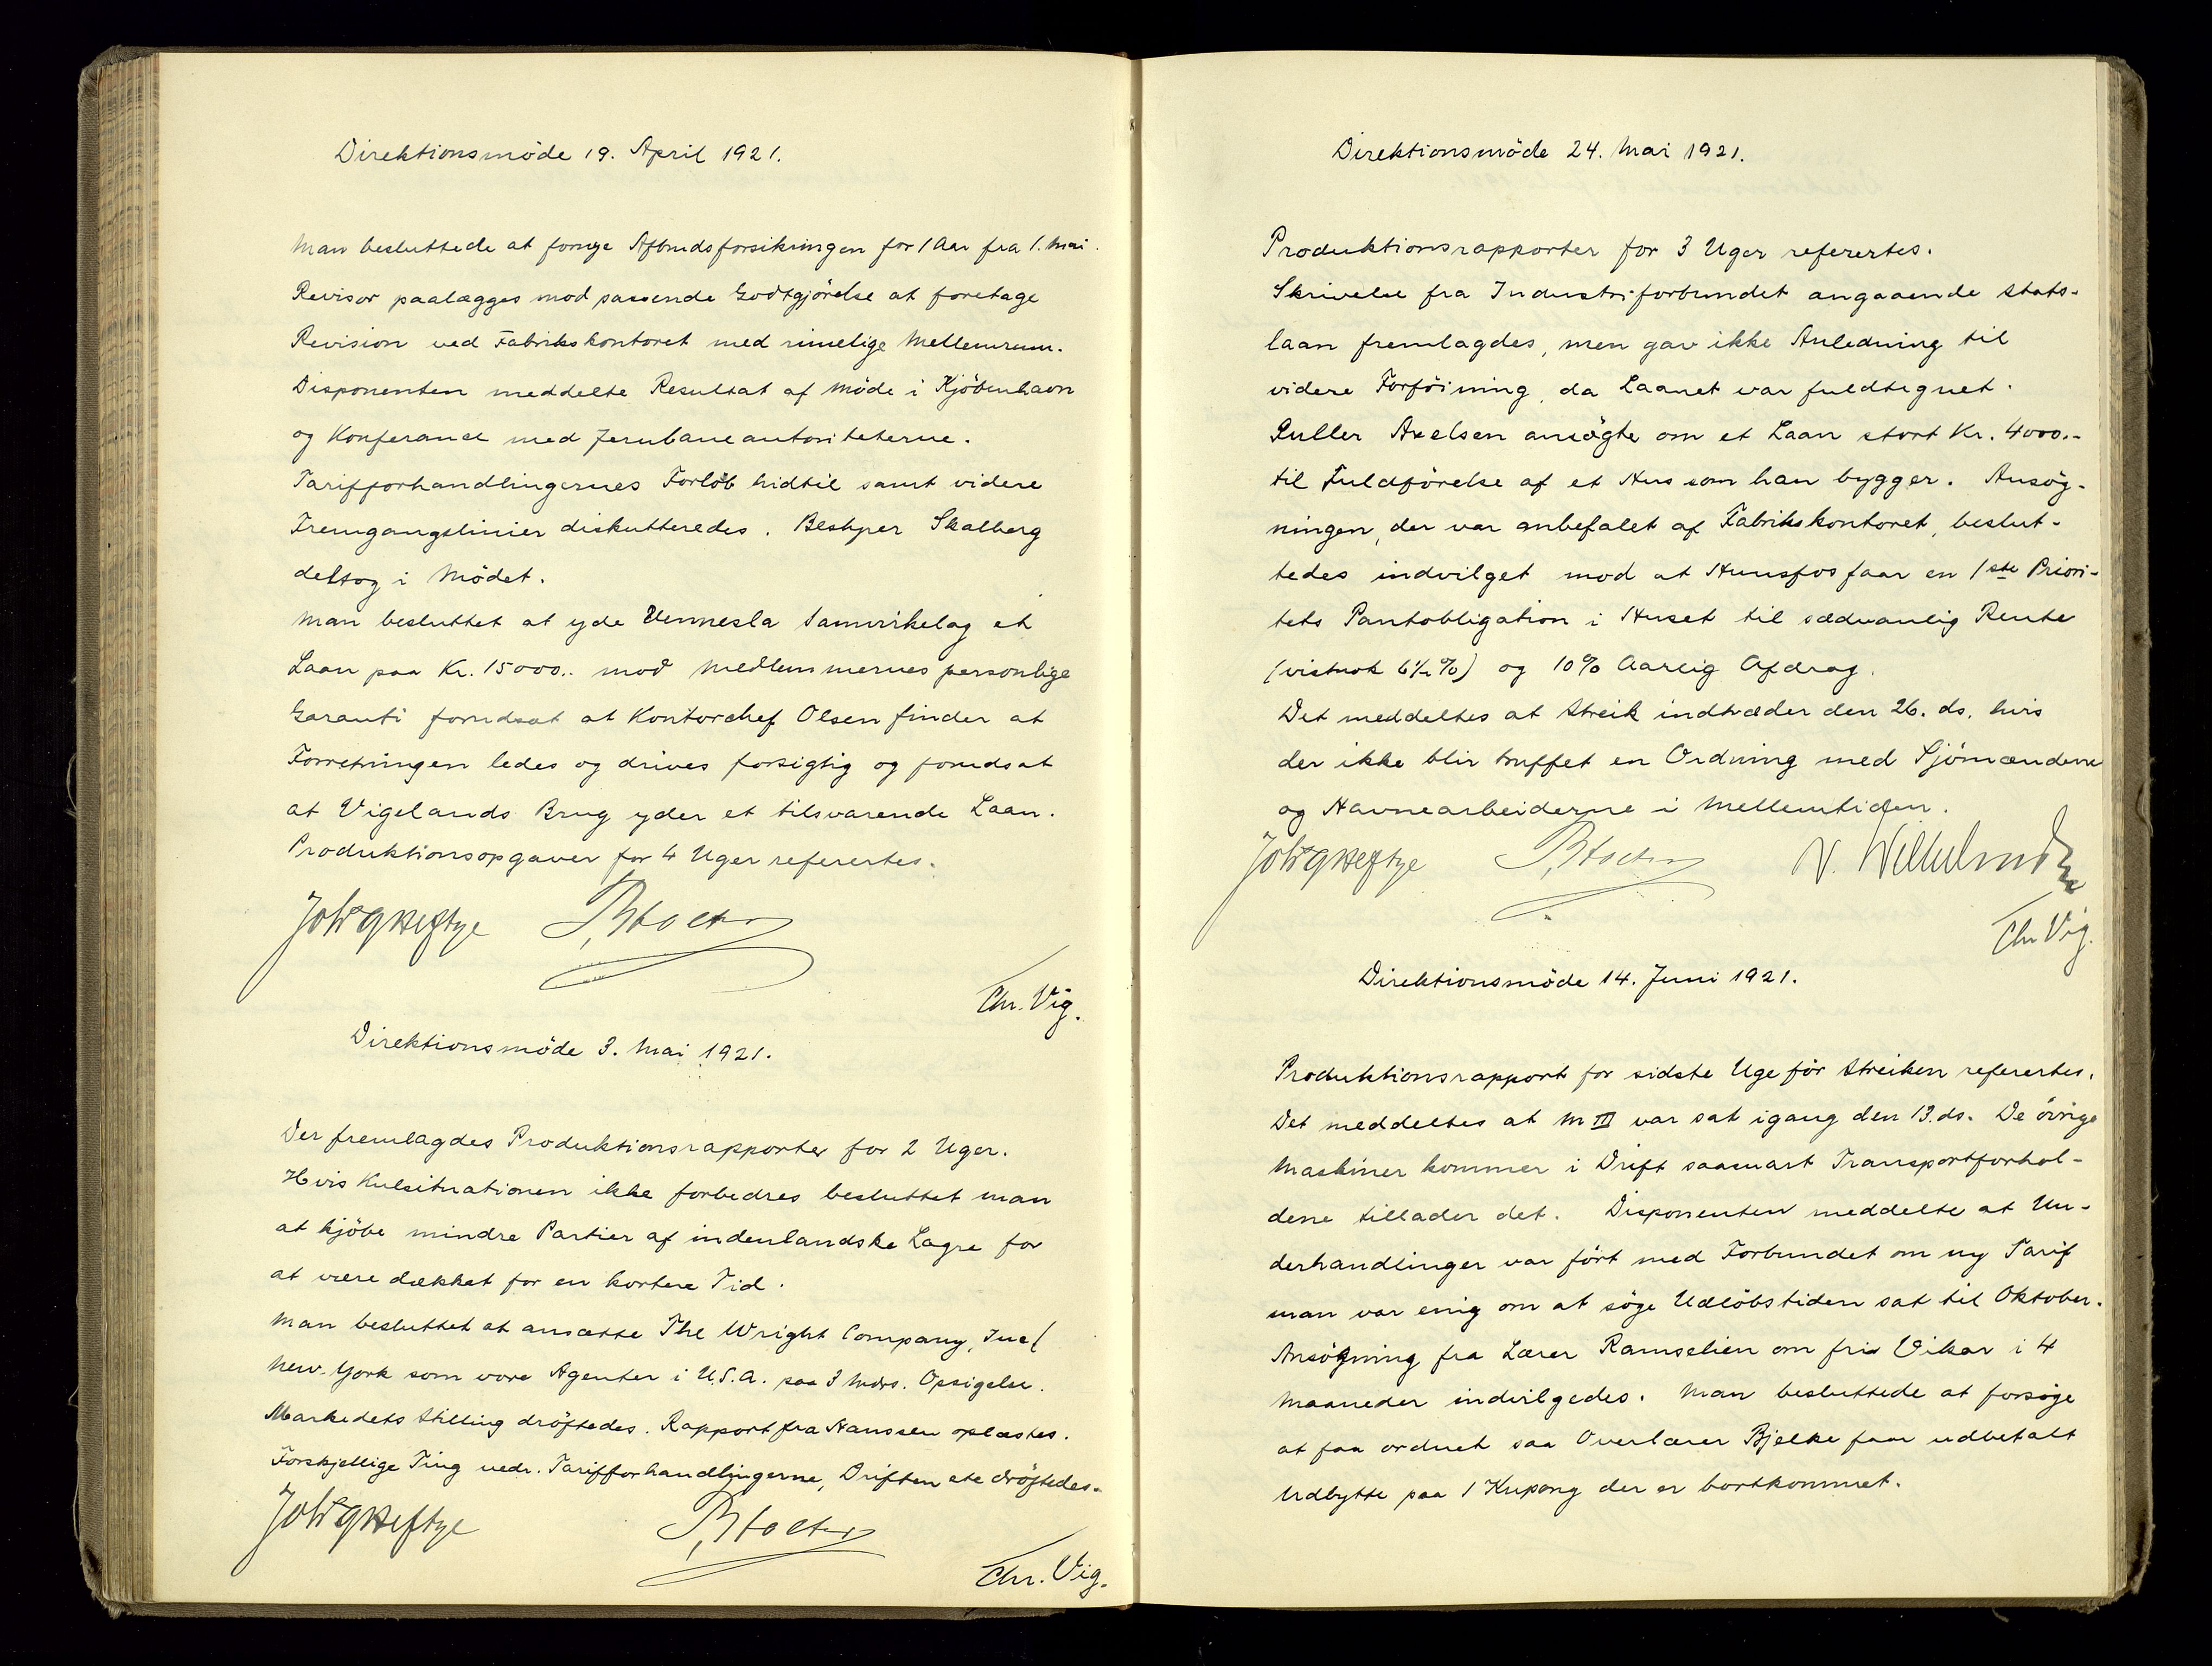 Direktionsmöde 19. April 1921.
Man besluttede at fornye Afbrudsforsikringen for 1 Aar fra 1. Mai.
Revisor paalægges mod passende Godtgjörelse at foretage
Revision ved Fabrikskontoret med rimelige Mellemrum.
Disponenten meddelte Resultat af Möde i Kjöbenhavn
og Konferance med Jernbaneautoriteterne.
Tarifforhandlingernes Forlöb hidtil samt videre
Fremgangslinier diskutteredes. Bestyrer Skalberg
deltog i Mödet.
Man besluttet at yde Vennesla Samvirkelag et
Laan paa Kr. 15000.. mod Medlemmernes personlige
Garanti forudsat at Kontorchef Olsen finder at
Forretningen ledes og drives forsigtig og forudsat
at Vigelands Brug yder et tilsvarende Laan.
Produktionsopgaver for 4 Uger referertes.
Joh HHeftye
Chr. Vig.
Direktionsmöde 3. Mai 1921.
Der fremlagdes Produktionsrapporter for 2 Uger.
Hvis Kulsituationen ikke forbedres besluttet man
at kjöbe mindre Partier af indenlandske Lagre for
at være dækket for en kortere Tid.
Man besluttet at ansætte The Wright Company, Inc/
New-York som vore Agenter i U.S.A. paa 3 Mdrs. Opsigelse.
Markedets Stilling dröftedes. Rapport fra Hanssen oplæstes.
Forskjellige Ting vedr. Tarifforhandlingerne, Driften etc dröftedes.
Joh HHeftye
Chr. Vig.
Direktionsmöde 24. Mai 1921.
Produktionsrapporter for 3 Uger referertes.
Skrivelse fra Industriforbundet angaaende Stats-
laan fremlagdes, men gav ikke Anledning til
videre Forföining, da Laanet var fuldtegnet.
Ruller Axelsen ansögte om et Laan stort Kr. 4000.-
til Fuldförelse af et Hus som han bygger. Ansög-
ningen, der var anbefalet af Fabrikskontoret, beslut-
tedes indvilget mod at Hunsfos faar en 1ste Priori-
tets Pantobligation i Huset til sædvanlig Rente
(vistnok 6½%) og 10% Aarlig Afdrag.
Det meddeltes at Streik indtræder den 26. ds. hvis
der ikke blir truffet en Ordning med Sjömændene
og Havnearbeiderne i Mellemtiden.
Joh HHeftye
Chr Vig.
Direktionsmöde 14. Juni 1921.
Produktionsrapport for sidste Uge för Streiken referertes.
Det meddeltes at M III var sat igang den 13. ds. De övrige
Maskiner kommer i Drift saasnart Transportforhol-
dene tillader det. Disponenten meddelte at Un-
derhandlinger var fört med Forbundet om ny Tarif
man var enig om at söge Udlöbstiden sat til Oktober.
Ansögning fra Lærer Ramselien om fri Vikar i 4
Maaneder indvilgedes. Man besluttede at forsöge
at faa ordnet saa Overlærer Bjelke faar udbetalt
Udbytte paa 1 Kupong der er bortkommet.